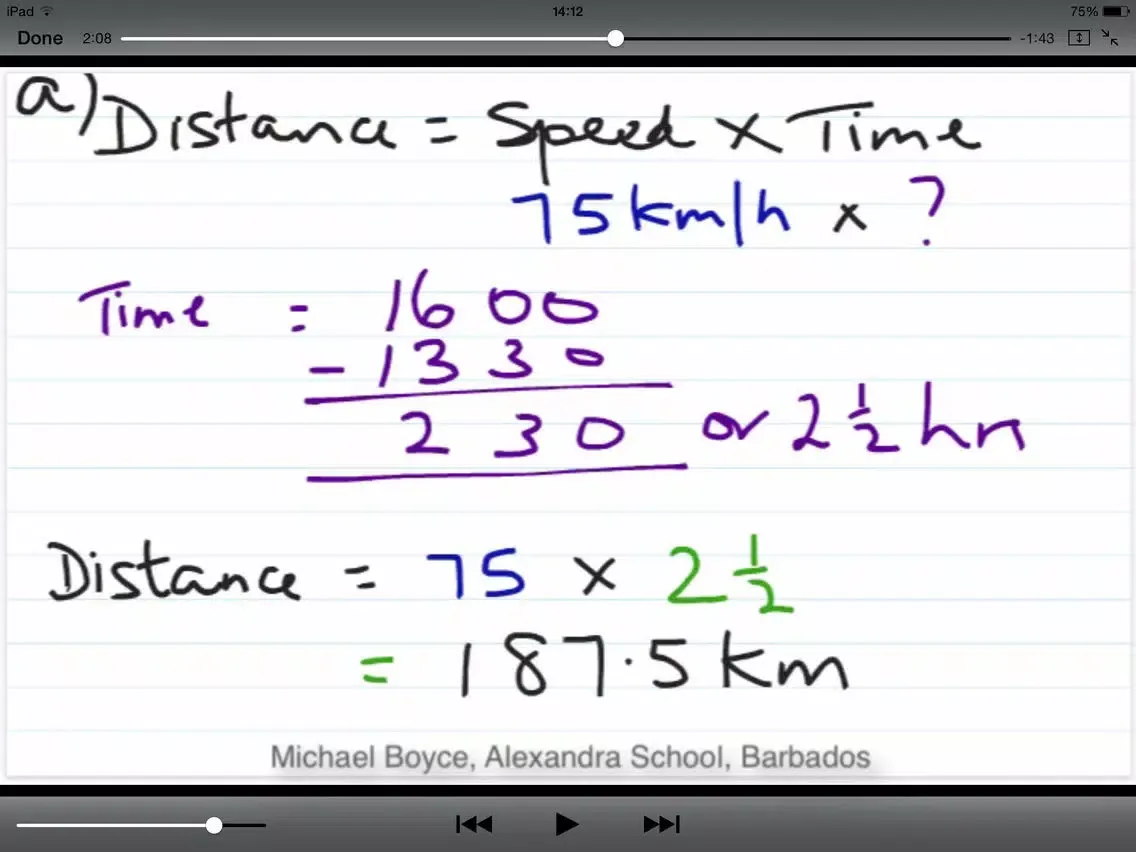 iPad 14:12 75%
Done 2:08 -1:43
a) Distance = Speed × Time
75km/h × ?
Time = 1600
- 1330
230 or 2 1/2 hrs
Distance = 75 × 2 1/2
= 187.5 km
Michael Boyce, Alexandra School, Barbados